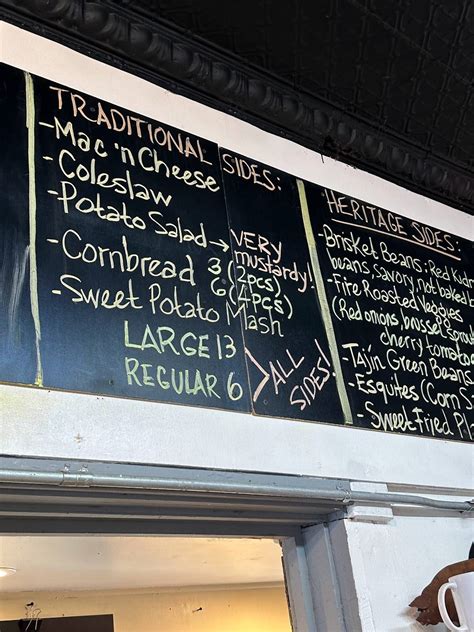 TRADITIONAL SIDES:
-Mac 'n Cheese
-Coleslaw
-Potato Salad → VERY mustardy!
-Cornbread 3 (2pcs)
6 (4pcs)
-Sweet Potato Mash
LARGE 13
REGULAR 6
> ALL SIDES!
HERITAGE SIDES:
-Brisket Beans: Red Kidn
beans savory, not baked
-Fire Roasted Veggies
(Red onions, brussel Sprout
cherry tomatoe
-Tajín Green Beans
-Esquites (Corn S
-Sweet Fried Pl